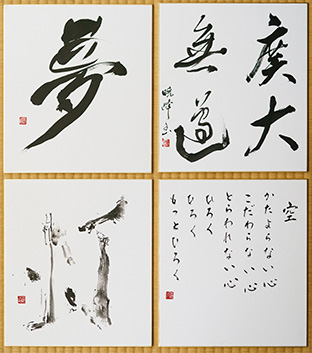 夢
廣大
無邊
空
かたよらない心
こだわらない心
とらわれない心
ひろく
ひろく
もっとひろく